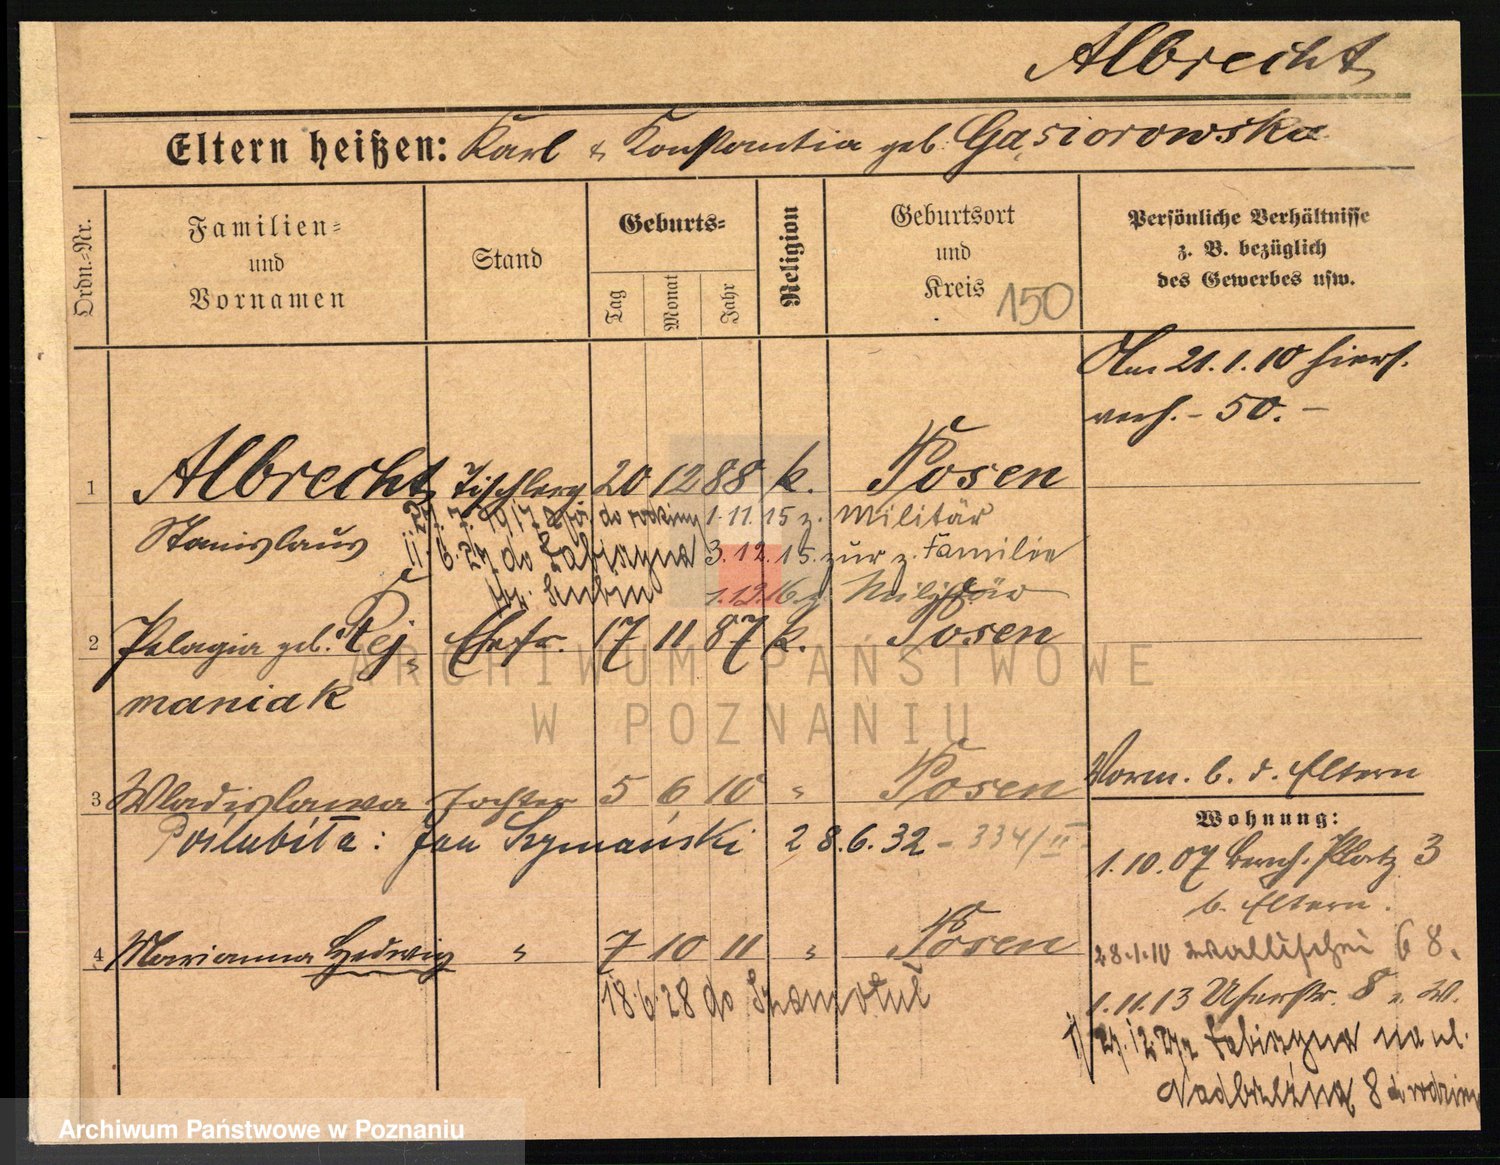 Albrecht
Eltern heißen: Karl & Konstantia geb. Gąsiorowska
Ordn.-Nr.
Familien- und Vornamen
Stand
Geburts-
Tag
Monat
Jahr
Religion
Geburtsort und Kreis
150
Persönliche Verhältnisse z. B. bezüglich des Gewerbes usw.
Am 21.1.10 hiers.
verh. - 50. -
1 Albrecht, Tischlerg 20 12 88 k. Posen
Stanislaus
27.7.1917 do rodziny 1.11.15 z. Militär
11.6.27 do Łabiszyna 3.12.15 zur z. Familie
Szubin 1.12.16 z. Militär
2 Pelagia geb. Rej- Ehefr. 17 11 87 k. Posen
maniak
3 Wladislawa Tochter 5 6 10 " Posen
Poślubiła: Jan Szymański 28.6.32 - 334/II
4 Marianna Hedwig " 7 10 11 " Posen
18.6.28 do Szamotuł
Vorm. b. d. Eltern
Wohnung:
1.10.07 Bernh. Platz 3
b. Eltern.
28.1.10 Wallischei 68.
1.11.13 Uferstr. 8 z. W.
27.12.27 z Łabiszyna na ul.
Nadbrzeżna 8 do rodziny
Archiwum Państwowe w Poznaniu
ARCHIWUM PAŃSTWOWE
W POZNANIU